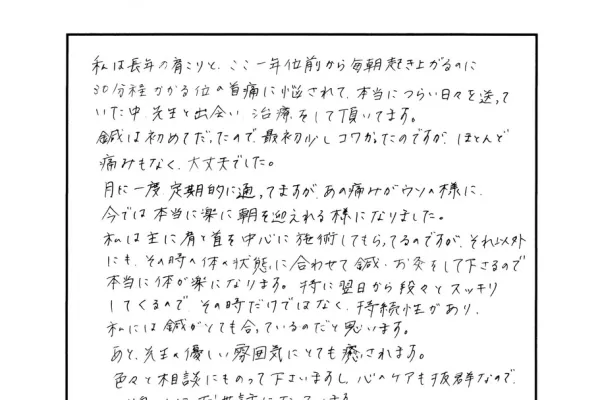 私は長年の肩こりと、ここ一年位前から毎朝起き上がるのに
30分程かかる位の首痛に悩されて、本当につらい日々を送って
いた中、先生と出会い、治療をして頂いてます。
鍼は初めてだったので、最初少しコワかったのですが、ほとんど
痛みもなく、大丈夫でした。
月に一度、定期的に通ってますが、あの痛みがウソの様に、
今では本当に楽に朝を迎えれる様になりました。
私は主に肩と首を中心に施術してもらってるのですが、それ以外
にも、その時の体の状態に合わせて鍼・お灸をして下さるので
本当に体が楽になります。特に翌日から段々とスッキリ
してくるので、その時だけではなく、持続性があり、
私には鍼がとても合っているのだと思います。
あと、先生の優しい雰囲気にとても癒されます。
色々と相談にものって下さいますし、心のケアも抜群なので、